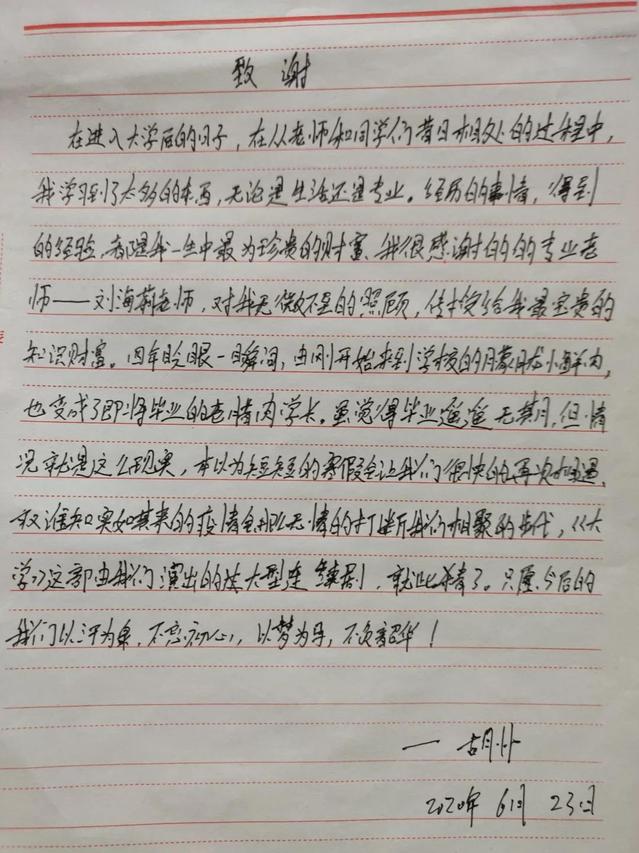 致谢
在进入大学后的日子，在从老师和同学们昔日相处的过程中，
我学习到了太多的东西，无论是生活还是专业。经历的事情，得到
的经验，都是我一生中最为珍贵的财富、我很感谢的的专业老
师——刘海莉老师，对我无微不至的照顾，传授给我最宝贵的
知识财富。四年眨眼一瞬间，由刚开始来到学校的朦胧小鲜肉，
也变成了即将毕业的老腊肉学长。虽觉得毕业遥遥无期，但情
况就是这么现实，本以为短短的寒假会让我们很快的再次相遇，
叹谁知突如其来的疫情无情的打断我们相聚的步伐，《大
学》这部由我们演出的大型连续剧，就此杀青了。只愿今后的
我们以汗为泉，不忘初心，以梦为马，不负韶华！
—胡
2020年6月23日